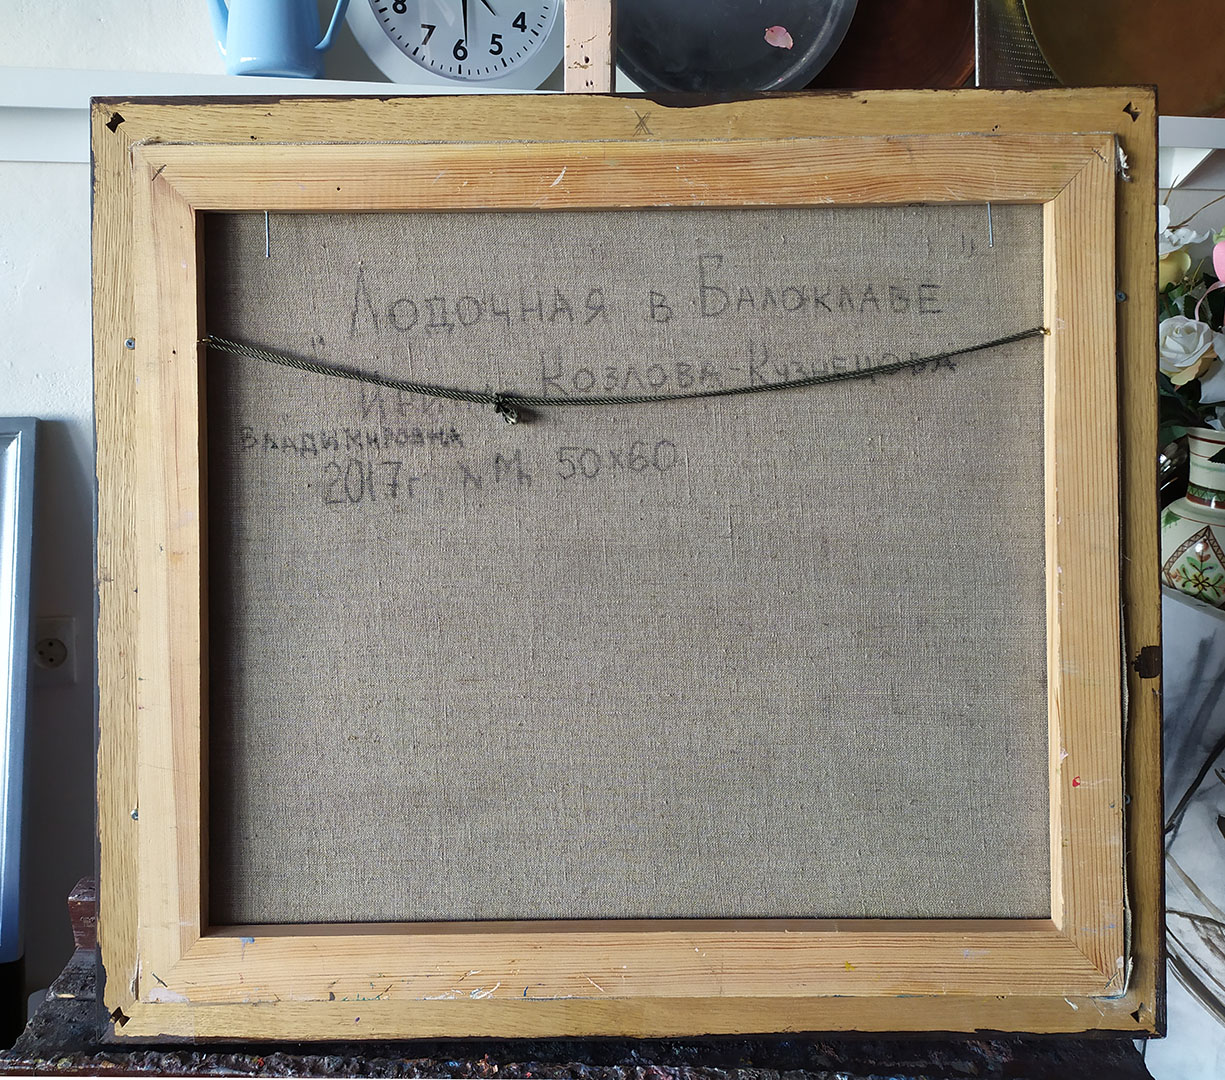 8 7 6 5 4
X
"Лодочная в Балоклаве"
Ирина Козлова-Кузнецова
Владимировна
2017г. х.м. 50х60